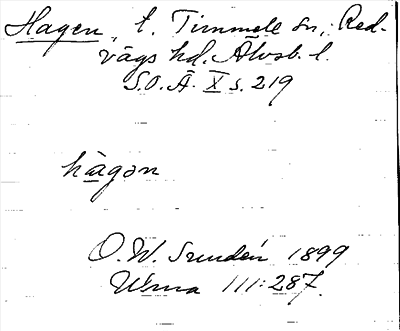 Hagen, t. Timmele sn., Red-
vägs hd. Älvsb. l.
S.O.Ä. X s. 219
hagən
O. W. Sundén 1899
111:287.